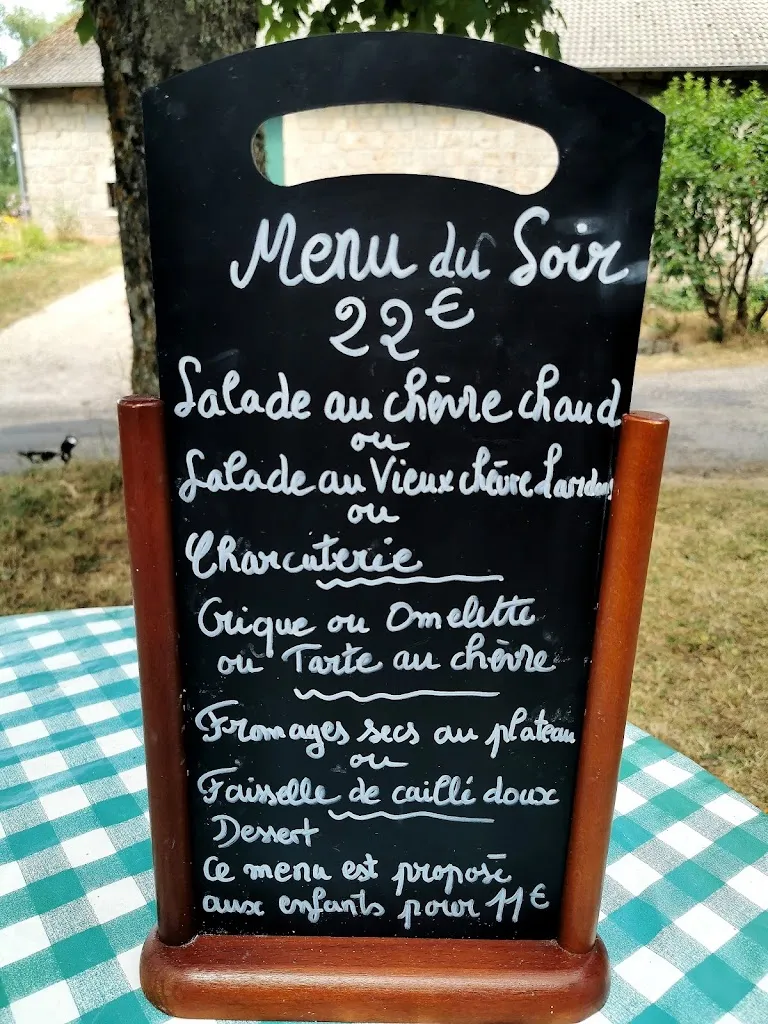 Menu du Soir
22€
Salade au chèvre chaud
ou
Salade au Vieux chèvre Lardons
ou
Charcuterie
Crique ou Omelette
ou Tarte au chèvre
Fromages secs au plateau
ou
Faisselle de caillé doux
Dessert
Ce menu est proposé
aux enfants pour 11€